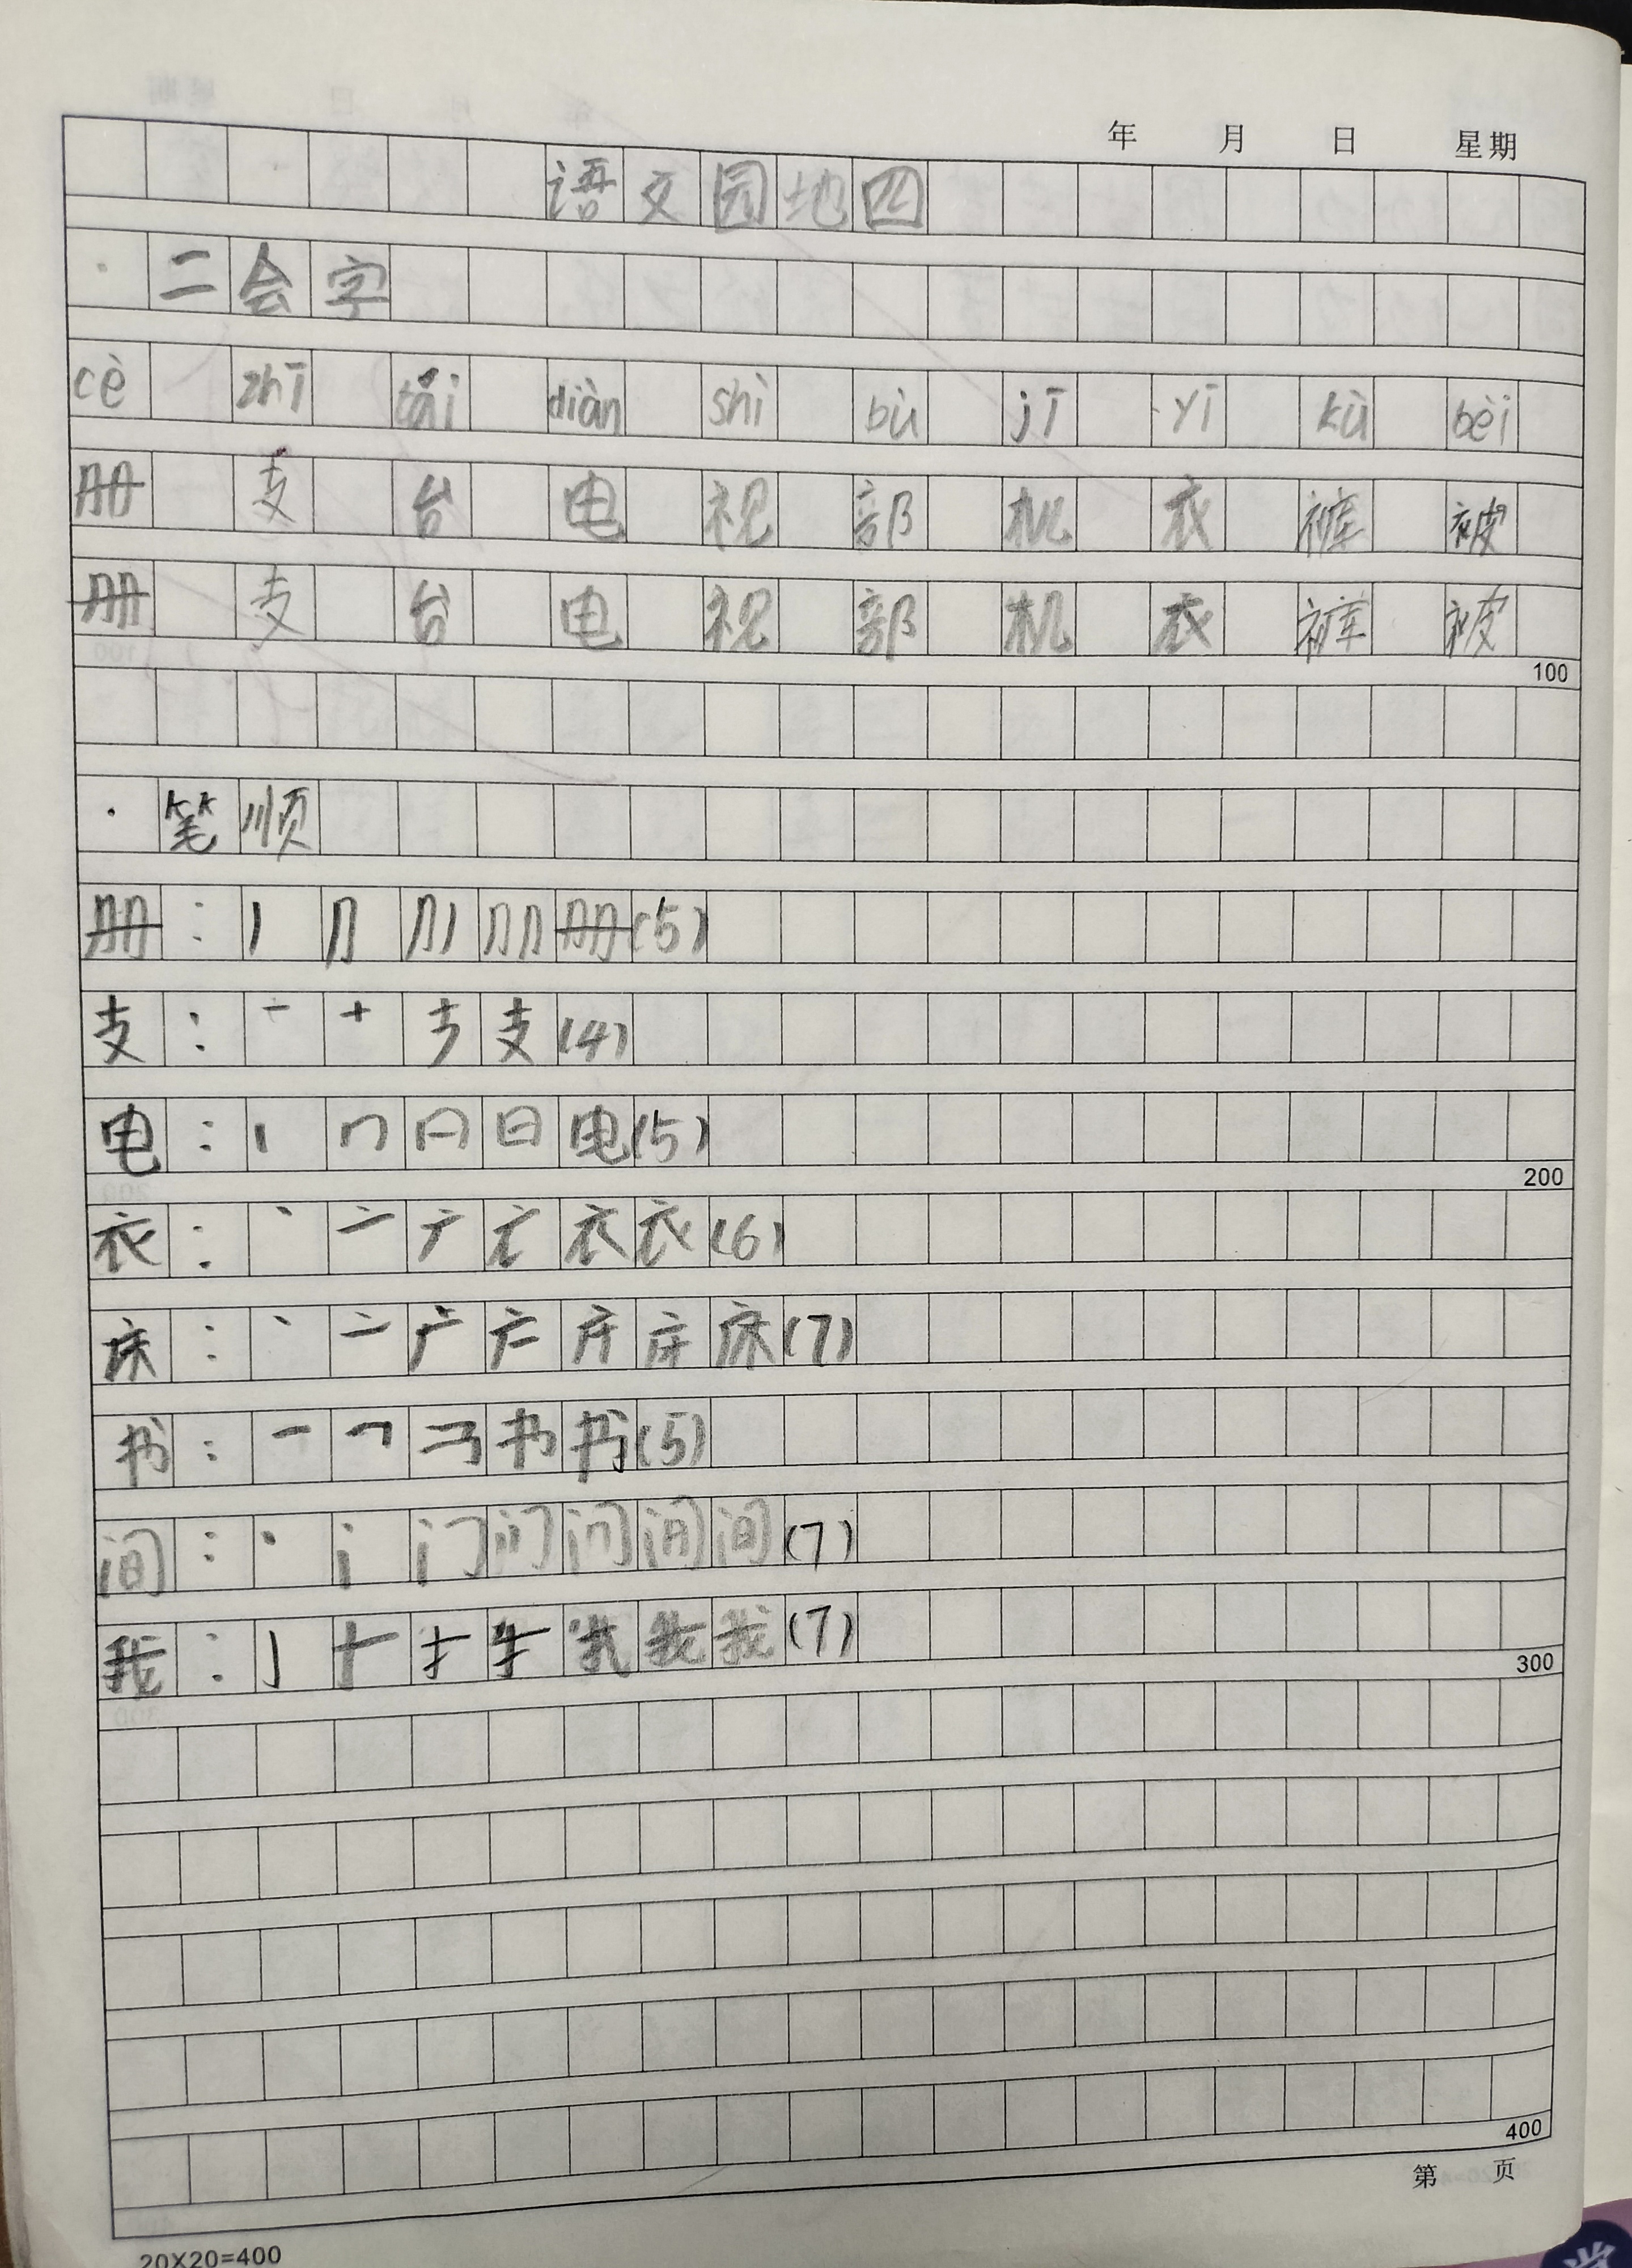 年 月 日 星期
语文园地四
· 二会字
cè zhī tái diàn shì bù jī yī kù bèi
册 支 台 电 视 部 机 衣 裤 被
册 支 台 电 视 部 机 衣 裤 被
100
· 笔顺
册：丿 ⺆ 册(5)
支：一 十 支(4)
电：丨 冂 日 电(5)
200
衣：丶 亠 衣(6)
床：丶 亠 广 床(7)
书：一 书(5)
间：丶 门 间(7)
我：我(7)
300
400
第 页
20×20=400